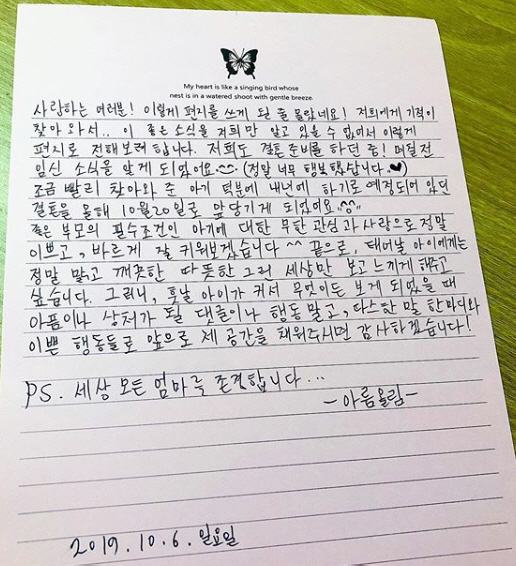 My heart is like a singing bird whose
nest is in a watered shoot with gentle breeze.
사랑하는 여러분! 이렇게 편지를 쓰게 될 줄 몰랐네요! 저희에게 기적이
찾아와서.. 이 좋은 소식을 저희만 알고 있을 수 없어서 이렇게
편지로 전해보려 합니다. 저희도 결혼준비를 하던 중! 며칠전
임신 소식을 알게 되었어요^^ (정말 너무 행복했습니다.♥)
조금 빨리 찾아와 준 아기 덕분에 내년에 하기로 예정되어 있던
결혼을 올해 10월20일로 앞당기게 되었어요^^
좋은 부모의 필수조건인 아기에 대한 무한 관심과 사랑으로 정말
이쁘고, 바르게 잘 키워보겠습니다^^ 끝으로, 태어날 아이에게는
정말 맑고 깨끗한 따뜻한 그런 세상만 보고 느끼게 해주고
싶습니다. 그러니, 훗날 아이가 커서 무엇이든 보게 되었을 때
아픔이나 상처가 될 댓글이나 행동 말고, 다스한 말 한마디와
이쁜 행동들로 앞으로 제 공간을 채워주시면 감사하겠습니다!
PS. 세상 모든 엄마를 존경합니다...
-아름올림-
2019. 10. 6. 일요일